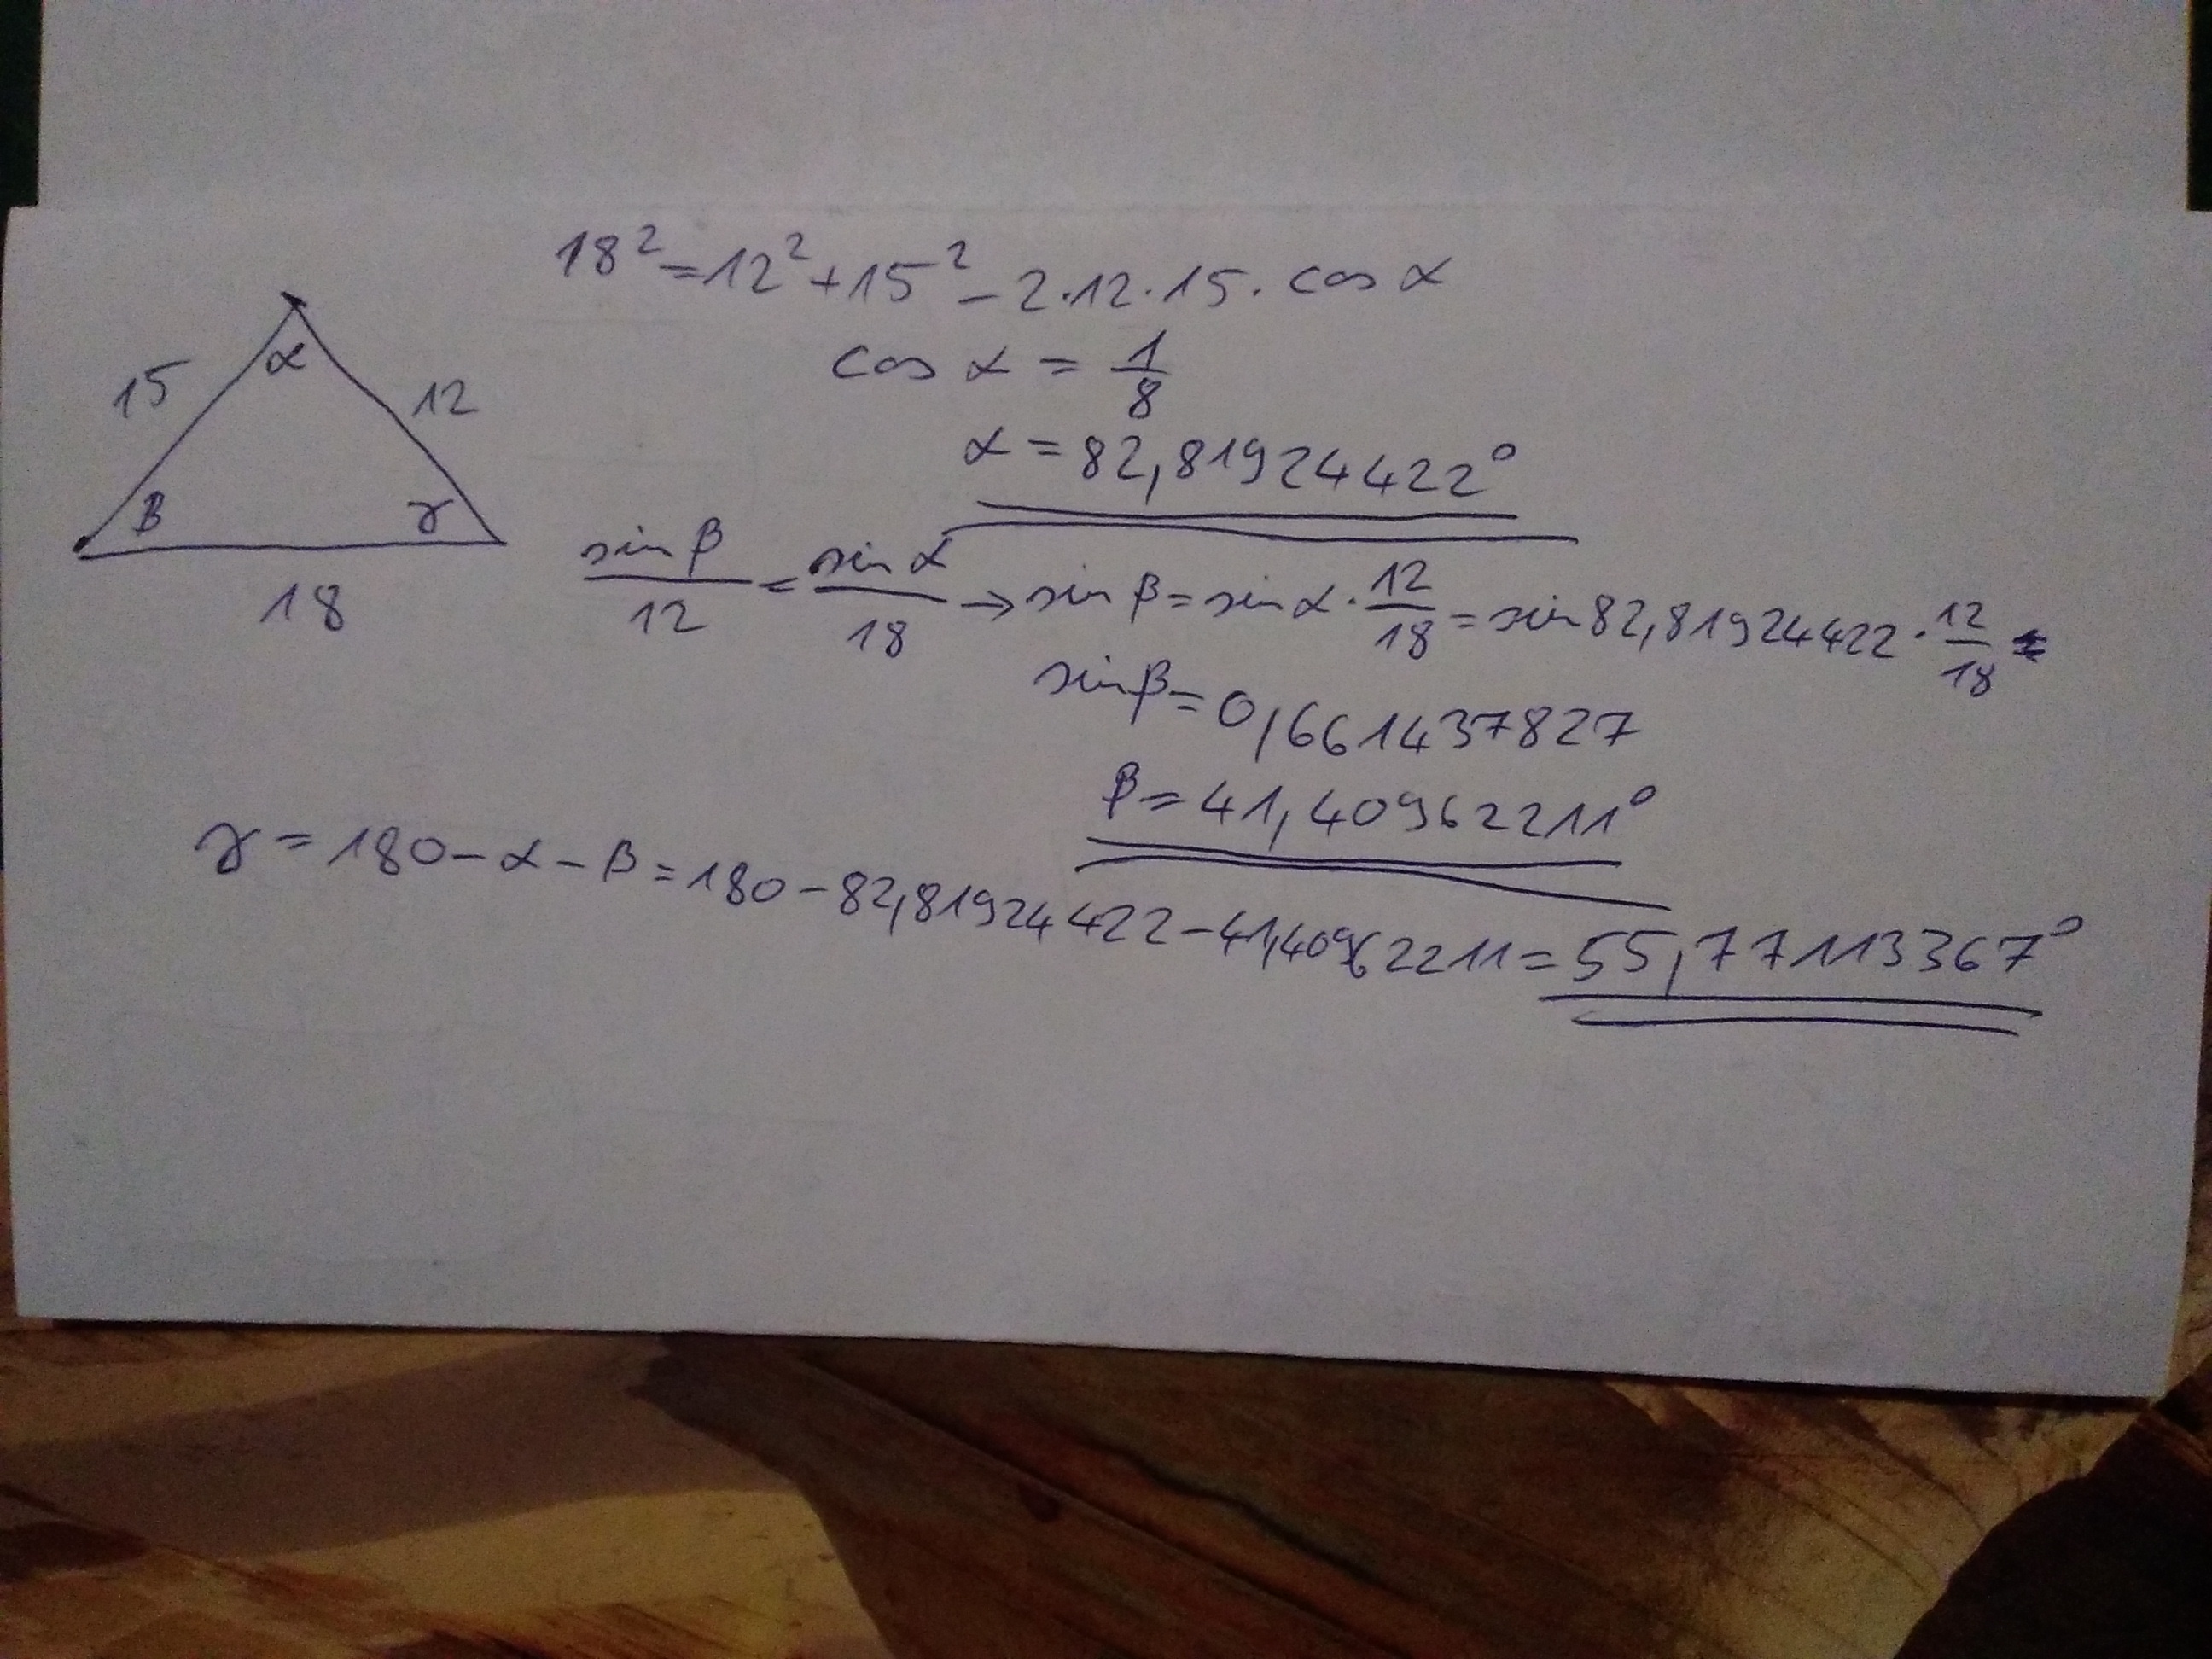 18² = 12² + 15² - 2·12·15· cos α
cos α = 1/8
α = 82,81924422°
15
α
12
β
γ
18
sin β / 12 = sin α / 18 → sin β = sin α · 12/18 = sin 82,81924422 · 12/18
sin β = 0,661437827
β = 41,40962211°
γ = 180 - α - β = 180 - 82,81924422 - 41,40962211 = 55,77113367°